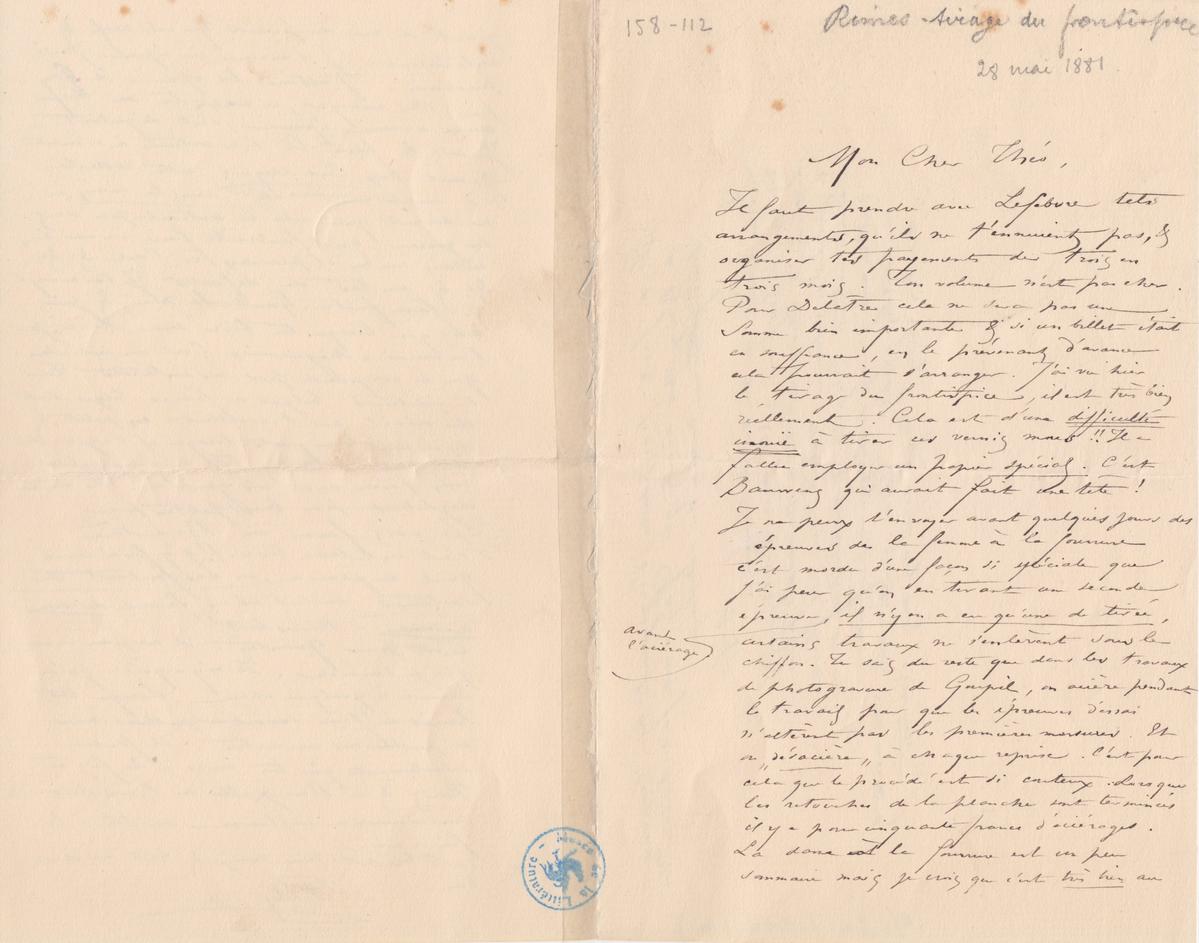 158-112
Rimes - tirage du frontispice
28 mai 1881.
Mon Cher Théo,
Il faut prendre avec Lefebvre tels
arrangements, qu'ils ne t'ennuient pas, &
organiser tes payements de trois en
trois mois. Ton volume n'est pas cher.
Pour Delatre cela ne sera pas une
somme bien importante & si un billet était
en souffrance, en le prévenant d'avance
cela pourrait s'arranger. J'ai vu hier
le tirage du frontispice, il est très bien
réellement. Cela est d'une difficulté
inouïe à tirer ces vernis mous!! Il a
fallu employer un papier spécial. C'est
qui aurait fait une tête!
Je ne peux t'envoyer avant quelques jours des
épreuves de la femme à la fourrure
c'est mordu d'une façon si spéciale que
j'ai peur qu'en en tirant une seconde
épreuve, il n'y en a eu qu'une de tirée,
avant
l'aciérage
certains travaux ne s'enlèvent sous le
chiffon. Tu sais du reste que dans les travaux
de photogravure de Goupil, on acière pendant
le travail pour que les épreuves d'essai
n'altèrent pas les premières morsures. Et
on „désacière„ à chaque reprise. C'est pour
cela que le procédé est si couteux. Lorsque
les retouches de la planche sont terminées
il y a pour cinquante francs d'aciérages.
La dame à la fourrure est un peu
sommaire mais je crois que c'est très bien au
Musée de la Littérature